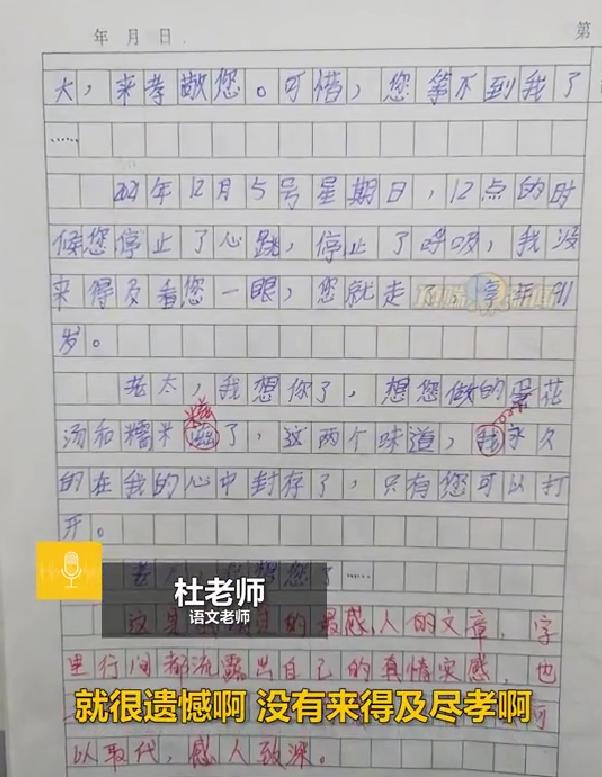 年 月 日
第
大，来孝敬您。可惜，您等不到我了
……
2021年12月5号星期日，12点的时
候您停止了心跳，停止了呼吸，我没
来得及看您一眼，您就走了，享年91
岁。
老太，我想你了，想您做的蛋花
汤和糯米了，这两个味道，我永久
的在我的心中封存了，只有您可以打
开。
老太，我想您了……
杜老师
语文老师
这是的最感人的文章，字
里行间都流露出自己的真情实感，也
就很遗憾啊 没有来得及尽孝啊
可
以取代，感人致深。